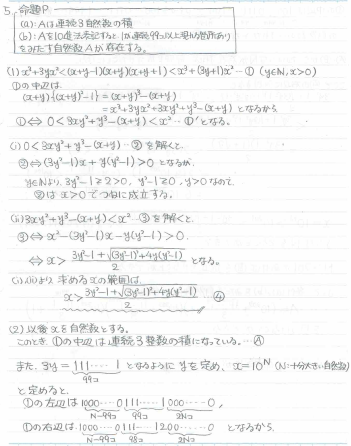 5. 命題P
(a): Aは連続3自然数の積
(b): Aを10進法表記すると、1が連続99コ以上現れる箇所あり
をみたす自然数Aが存在する。
(1) x³+3yx²<(x+y-1)(x+y)(x+y+1)<x³+(3y+1)x² … ① (y∈N, x>0)
①の中辺は
(x+y){(x+y)²-1} = (x+y)³-(x+y)
= x³+3yx²+3xy²+y³-(x+y) となるから
①⇔ 0<3xy²+y³-(x+y)<x² … ①' となる。
(i) 0<3xy²+y³-(x+y) … ② を解くと
②⇔ (3y²-1)x + y(y²-1)>0 となるが、
y∈Nより、3y²-1≧2>0, y²-1≧0, y>0なので
②は x>0 でつねに成立する。
(ii) 3xy²+y³-(x+y)<x² … ③ を解くと
③⇔ x²-(3y²-1)x-y(y²-1)>0
⇔ x> 3y²-1+√(3y²-1)²+4y(y²-1) / 2 となる。
(i)(ii)より 求めるxの範囲は
x> 3y²-1+√(3y²-1)²+4y(y²-1) / 2 ④
(2) 以後xを自然数とする。
このとき ①の中辺は連続3整数の積になっている。… Ⓐ
また、3y = 111……1 となるようにyを定め、x=10ᴺ (N:十分大きい自然数)
99コ
と定めると、
①の左辺は 1000……0 111……1 000……0,
N-99コ 99コ 2Nコ
①の右辺は 1000……0 111……1 2 00……0 となるから、
N-99コ 98コ 2Nコ